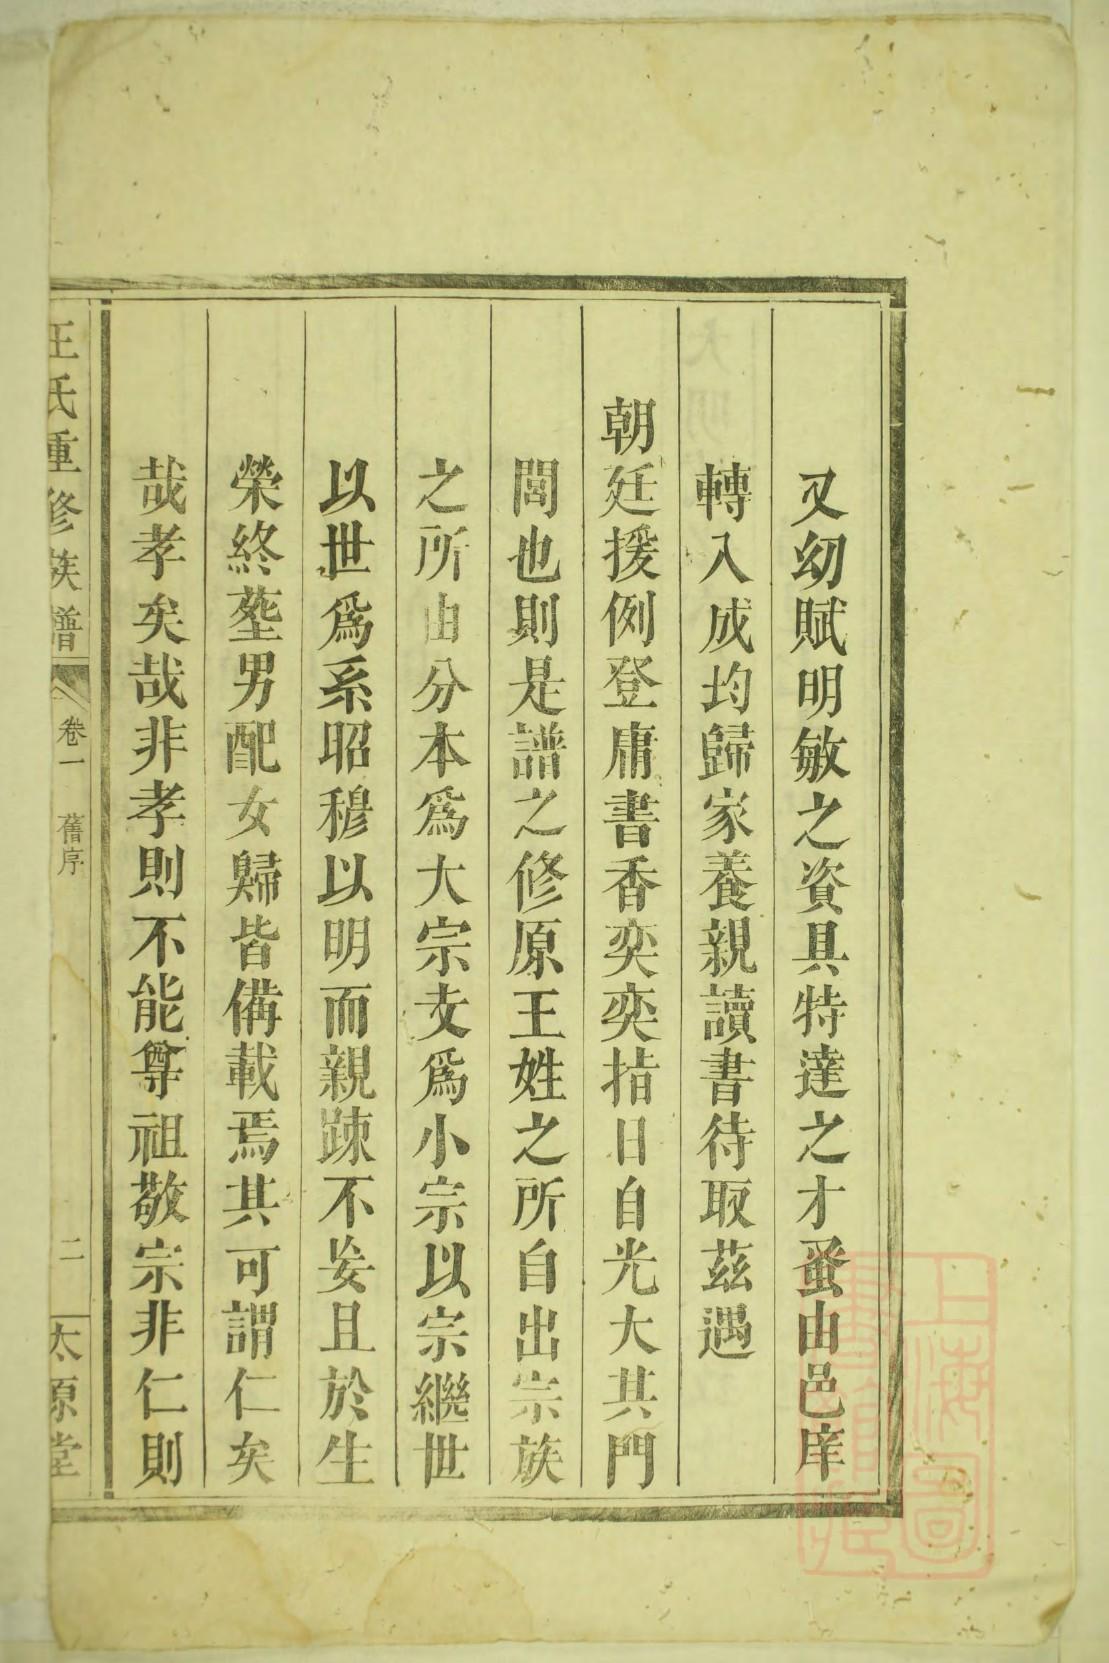 又幼賦明敏之資具特達之才蚤由邑庠
轉入成均歸家養親讀書待取茲遇
朝廷援例登庸書香奕奕指日自光大其門
閭也則是譜之修原王姓之所自出宗族
之所由分本為大宗支為小宗以宗繼世
以世為系昭穆以明而親踈不妄且於生
榮終塟男配女歸皆備載焉其可謂仁矣
哉孝矣哉非孝則不能尊祖敬宗非仁則
王氏重修族譜
卷一
舊序
二
太原堂
上海圖
書館藏